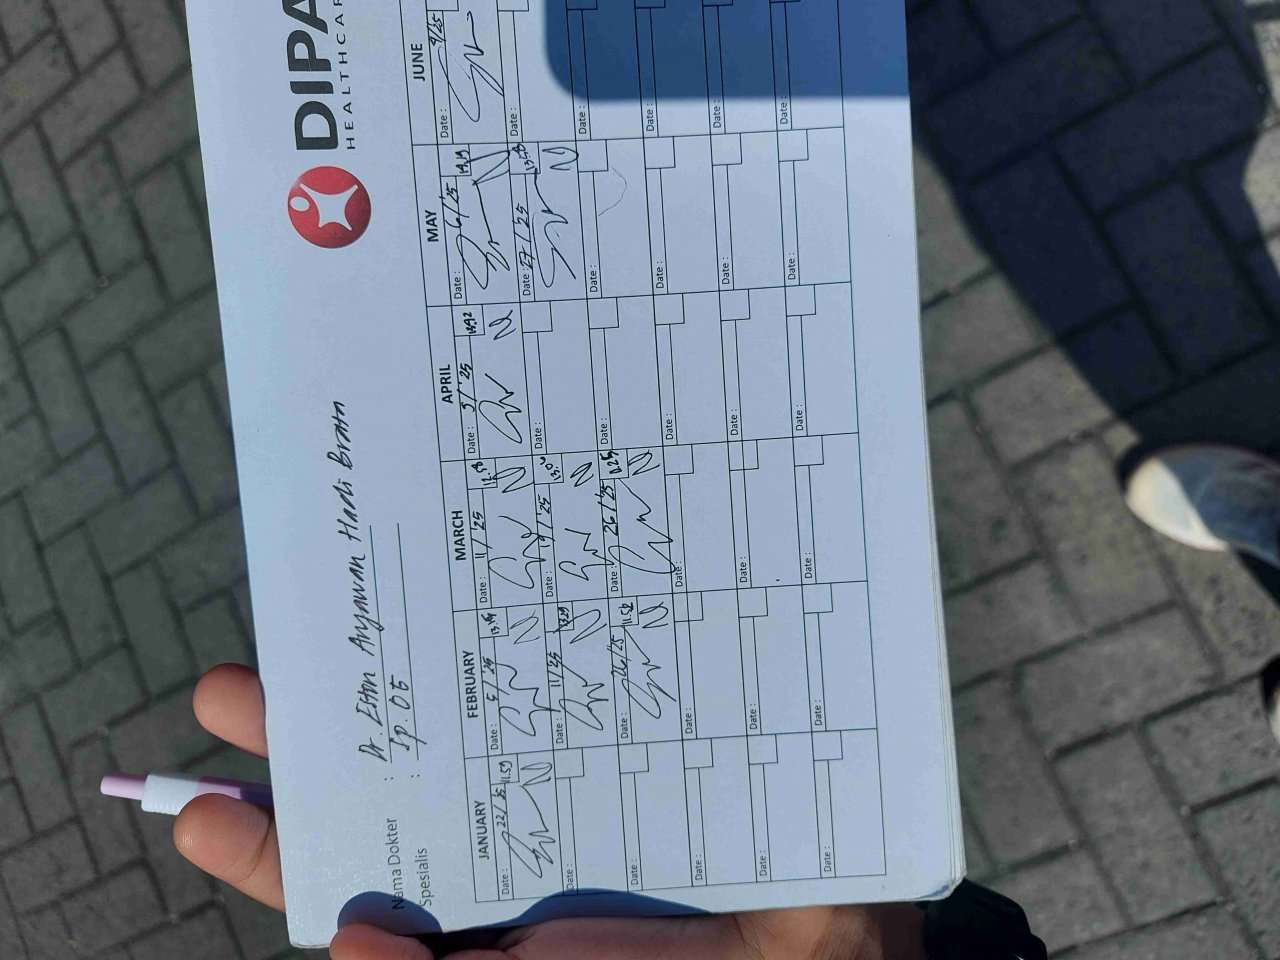 DIPA
HEALTHCAR
Nama Dokter : Dr. Eston Aryawan Hadi Bram
Spesialis : Sp. OT
JANUARY FEBRUARY MARCH APRIL MAY JUNE
Date : 22/25 11.59 Date : 5/'25 Date : 11/'25 Date : 5/'25 Date : 6/'25 Date : 9/25
Date : Date : 11/25 Date : 19/'25 Date : Date : 27/'25 Date :
Date : Date : 26/25 11.52 Date : 26/'25 Date : Date : Date :
Date : Date : Date : Date : Date : Date :
Date : Date : Date : Date : Date : Date :
Date : Date : Date : Date : Date : Date :